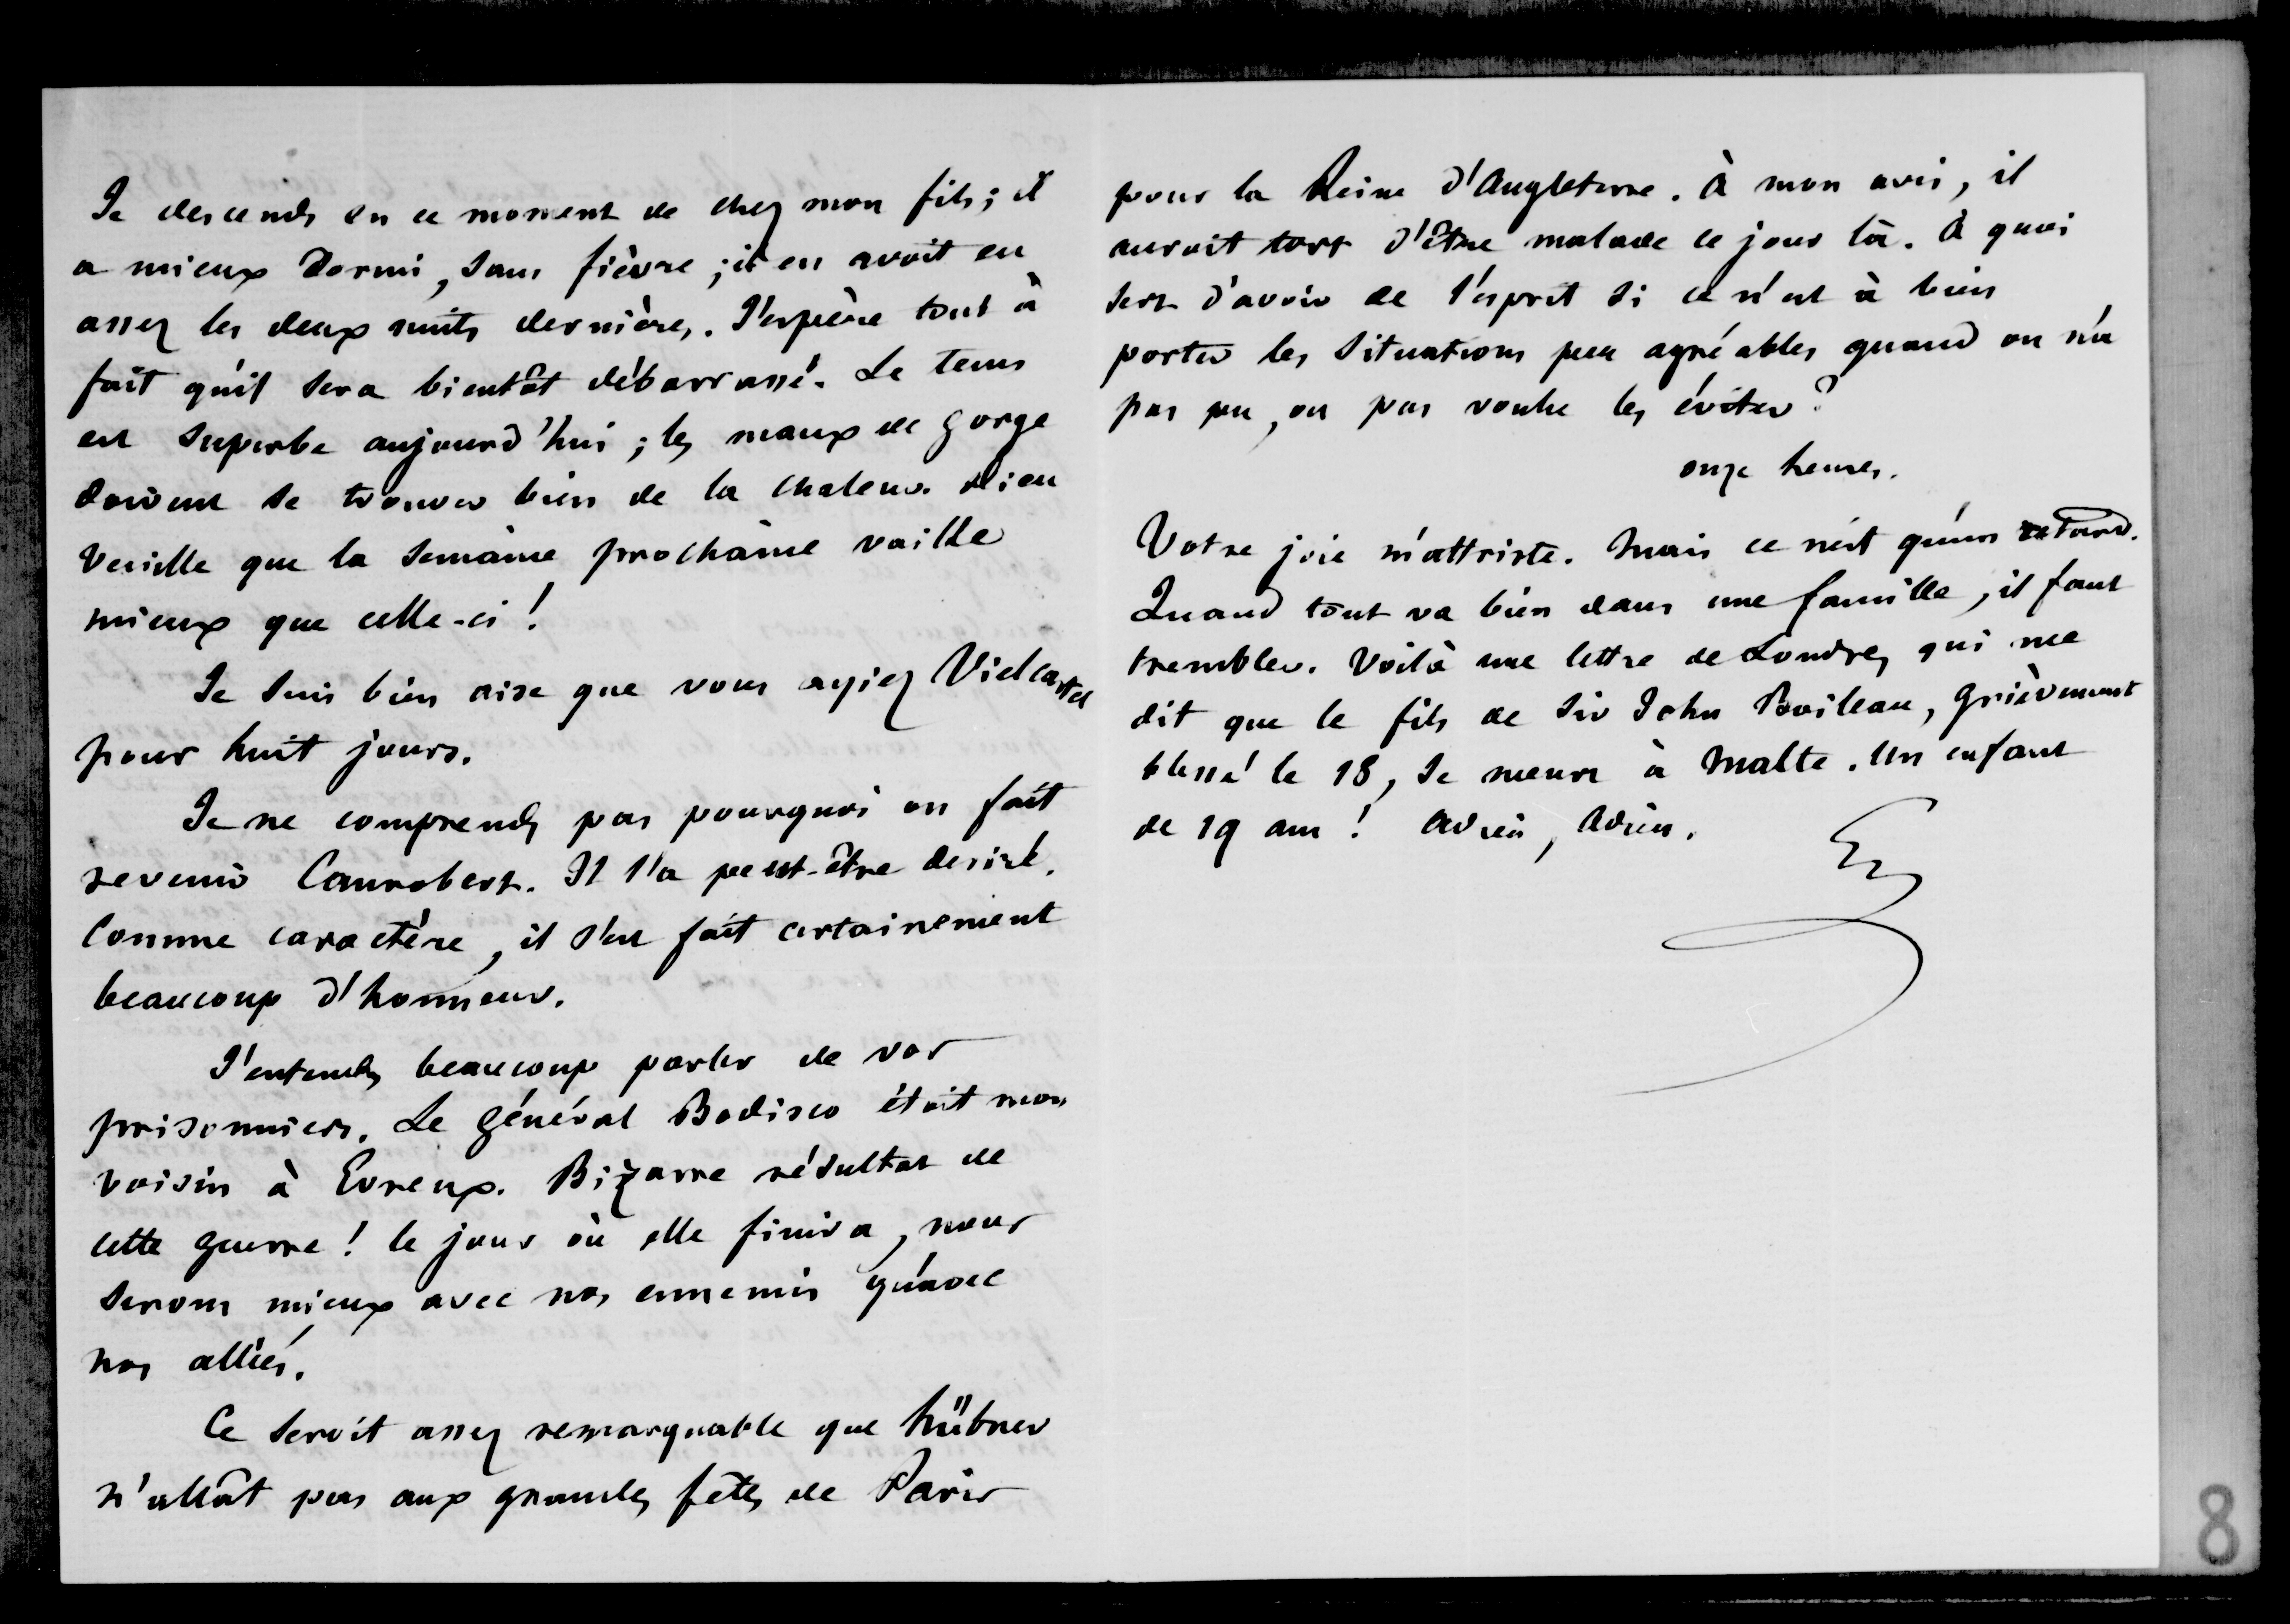 Je descends en ce moment de chez mon fils ; il
a mieux dormi, sans fièvre ; il en avoit eu
assez les deux nuits dernières. J'espère tout à
fait qu'il sera bientôt débarrassé. Le tems
est superbe aujourd'hui ; les maux de gorge
doivent se trouver bien de la chaleur. Dieu
veuille que la semaine prochaine vaille
mieux que celle-ci !
Je suis bien aise que vous ayiez Vielcastel
pour huit jours.
Je ne comprends pas pourquoi on fait
revenir Canrobert. Il l'a peut-être desiré.
Comme caractère, il s'est fait certainement
beaucoup d'honneur.
J'entends beaucoup parler de vos
prisonniers. Le général Bodisco étoit mon
voisin à Evreux. Bizarre résultat de
cette guerre ! le jour où elle finira, nous
serons mieux avec nos ennemis qu'avec
nos alliés.
Ce seroit assez remarquable que hübner
n'allât pas aux grandes fêtes de Paris
pour la Reine d'Angleterre. à mon avis, il
auroit tort d'être malade ce jour là. à quoi
sert d'avoir de l'esprit si ce n'est à bien
porter les situations peu agréables quand on n'a
pas pu, ou pas voulu les éviter ?
onze heures.
Votre joie m'attriste. Mais ce n'est qu'un retard.
Quand tout va bien dans une famille, il faut
trembler. Voilà une lettre de Londres qui me
dit que le fils de Sir John Boileau, grièvement
blessé le 18, se meurt à Malte. Un enfant
de 19 ans ! adieu, adieu.
8